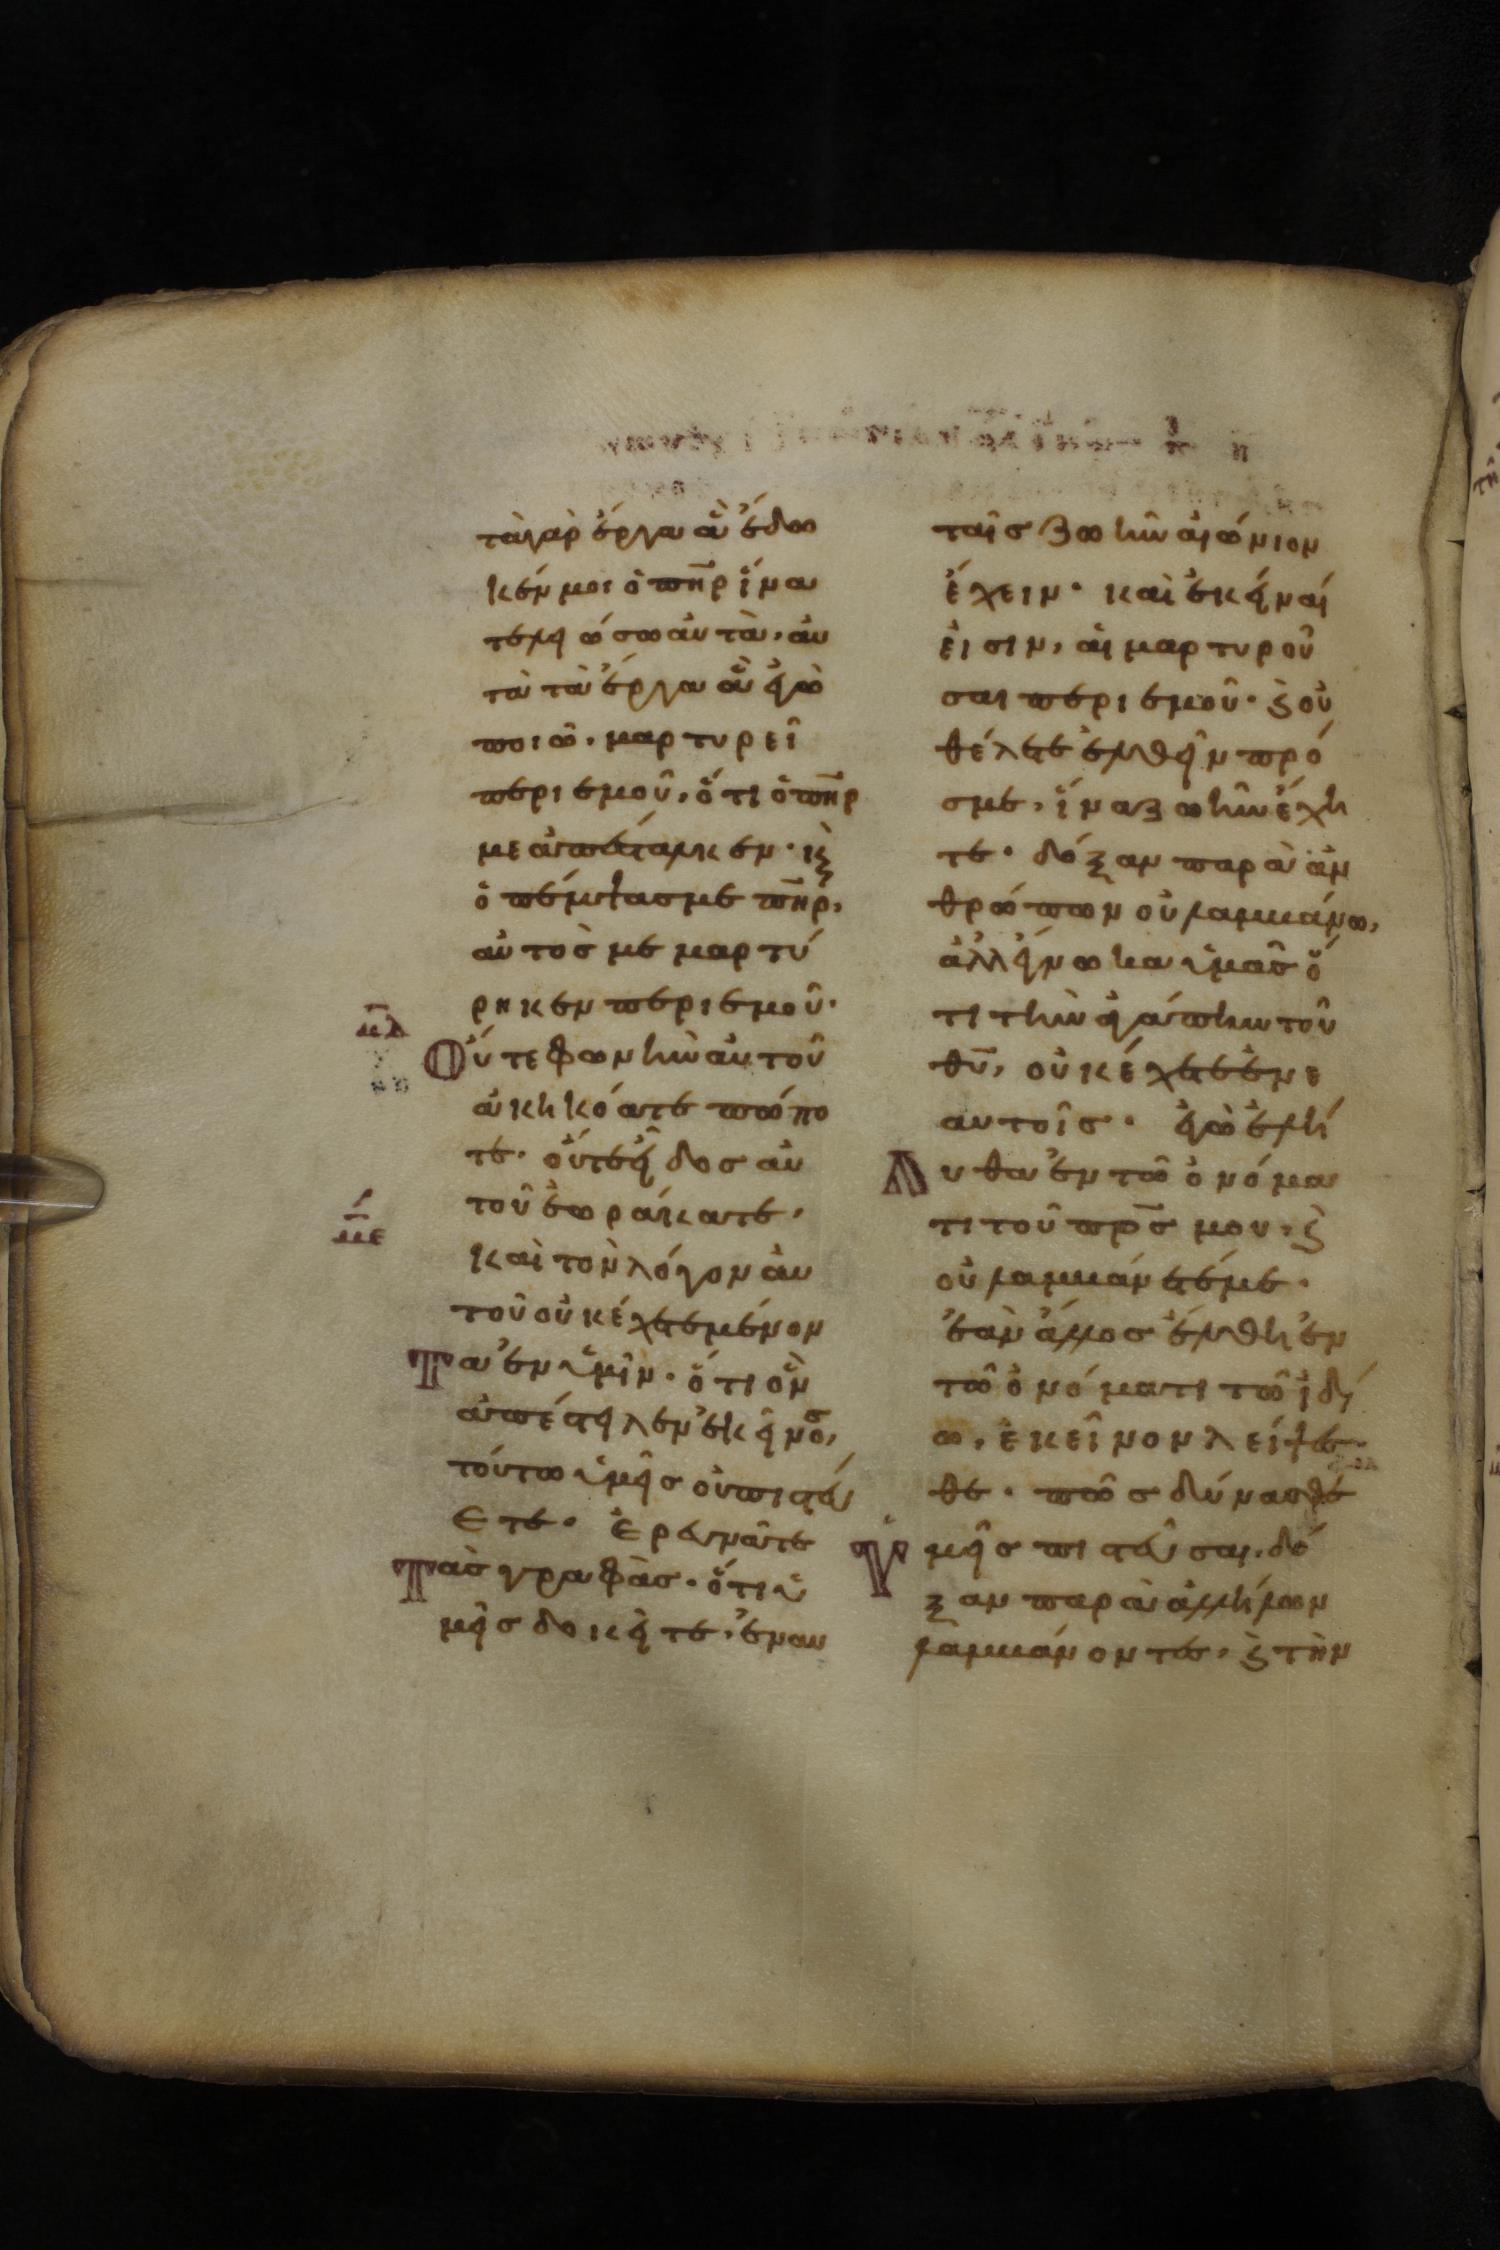 τὰ γὰρ ἔργα ἃ ἔδω
κέν μοι ὁ πη̅ρ ἵνα
τελειώσω αὐτὰ, αὐ
τὰ τὰ ἔργα ἃ ἐγὼ
ποιῶ, μαρτυρεῖ
περι εμοῦ, ὅτι ὁ πη̅ρ
με ἀπέσταλκεν· κ̀
ὁ πέμψασ με πη̅ρ,
αὐτὸσ με μαρτύ
ρηκεν περι εμοῦ·
μδ
Ούτε φωνὴν αυτοῦ
ἀκηκόατε πώπο
τε· οὔτε εἶδοσ αὐ
τοῦ ἑωράκατε,
με
καὶ τὸν λόγον αὐ
τοῦ οὐκ έχετε μένον
Τα ἐν ὑμῖν· ὅτι ὃν
ἀπέστειλεν ἐκεῖνοσ,
τούτω ὑμεῖσ οὐ πιστεύ
Ετε· Ἐρευνᾶτε
Τὰσ γραφὰσ· ὅτι ὑ
μεῖσ δοκεῖτε, ἐν αυ
ταῖσ ζωὴν αἰώνιον
ἔχειν· καὶ ἐκεῖναί
εἰσιν, αἱ μαρτυροῦ
σαι περι εμοῦ· κ̀ οὐ
θέλετε ἐλθεῖν πρό
σ με, ἵνα ζωὴν ἔχη
τε· δόξαν παρὰ ἀν
θρώπων οὐ λαμβάνω,
ἀλλ' ἔγνωκα ὑμᾶσ ὅ
τι τὴν ἀγάπην τοῦ
θυ̅, οὐκ έχετε ἐν ε
αυτοῖσ· ἐγὼ ἐλή
Λυθα ἐν τῶ ὀνόμα
τι τοῦ πρ̅σ μου, κ̀
οὐ λαμβάνετέ με·
ἐὰν ἄλλοσ ἔλθη ἐν
τῶ ὀνόματι τῶ ἰδί
ω, ἐκεῖνον λείψε
θε· πῶσ δύνασθε
Ὑμεῖσ πιστεῦσαι, δό
ξαν παρὰ ἀλλήλων
λαμβάνοντεσ, κ̀ τὴν